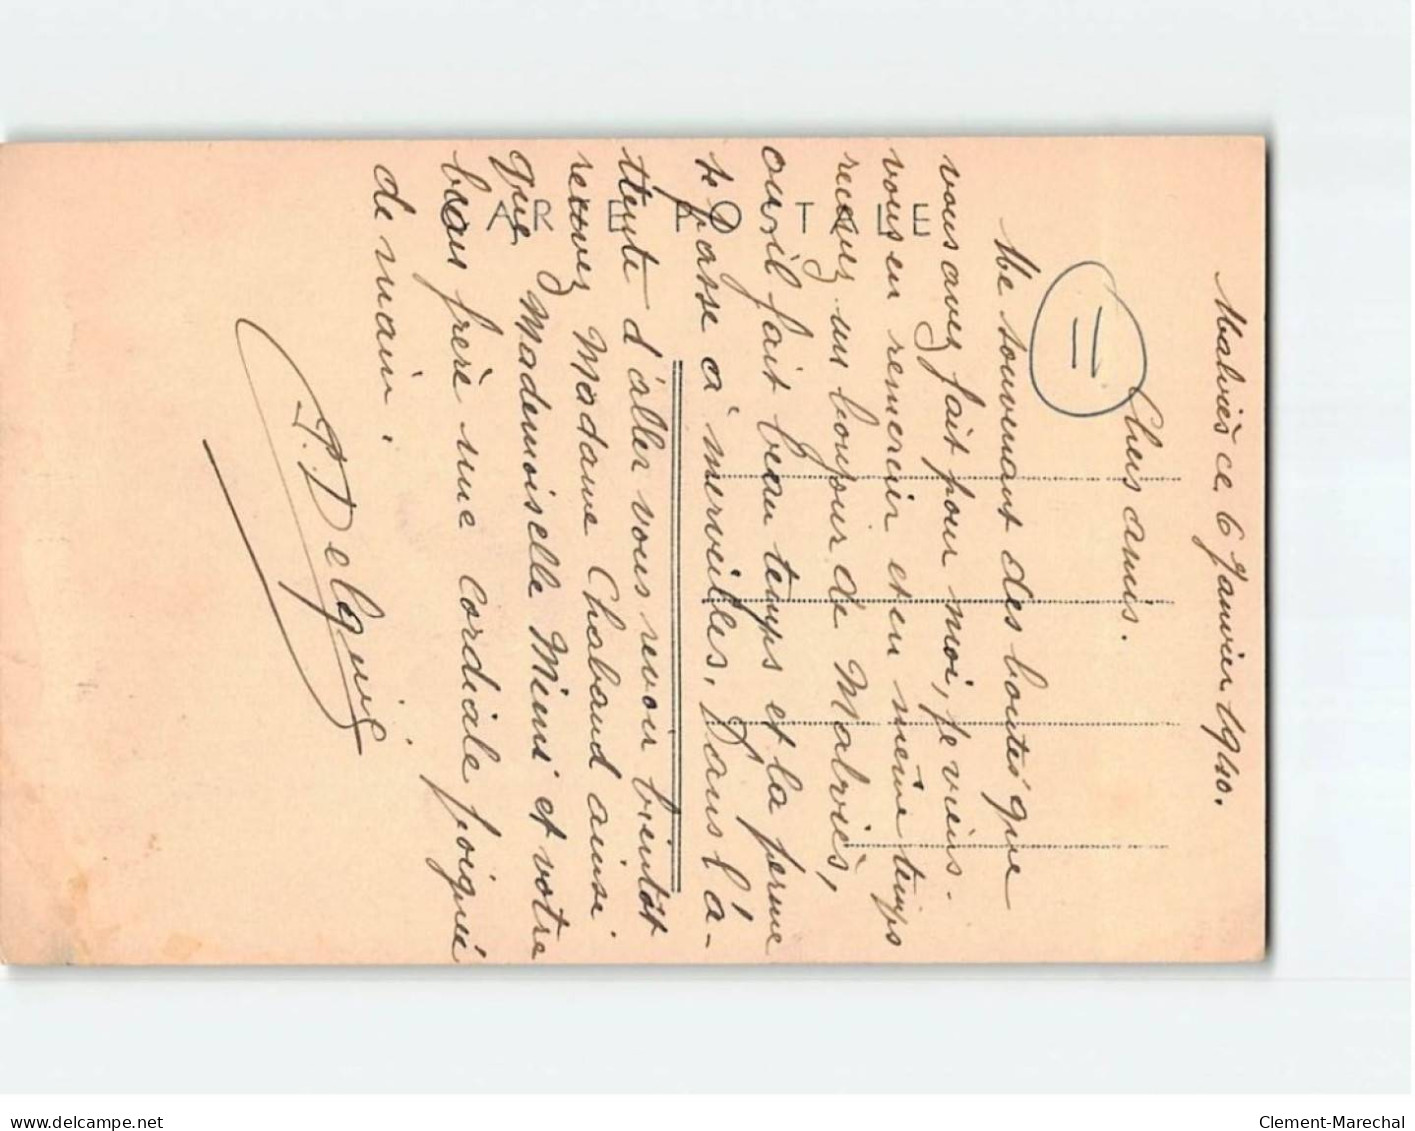 Malviès ce 6 Janvier 1940.
Chers amis.
Me souvenant des bontés que
vous avez fait pour moi, je viens.
vous en remercier et en même temps
recevez un bonjour de Malviès,
ou il fait beau temps et la ferme
se passe à merveilles. Dans l'a-
ttente d'aller vous revoir bientôt
recevez Madame Chabaud ainsi
que Mademoiselle Mimi et votre
beau frère une cordiale poignée
de main.
Delguié
CARTE POSTALE
delcampe.net
Clement-Marechal